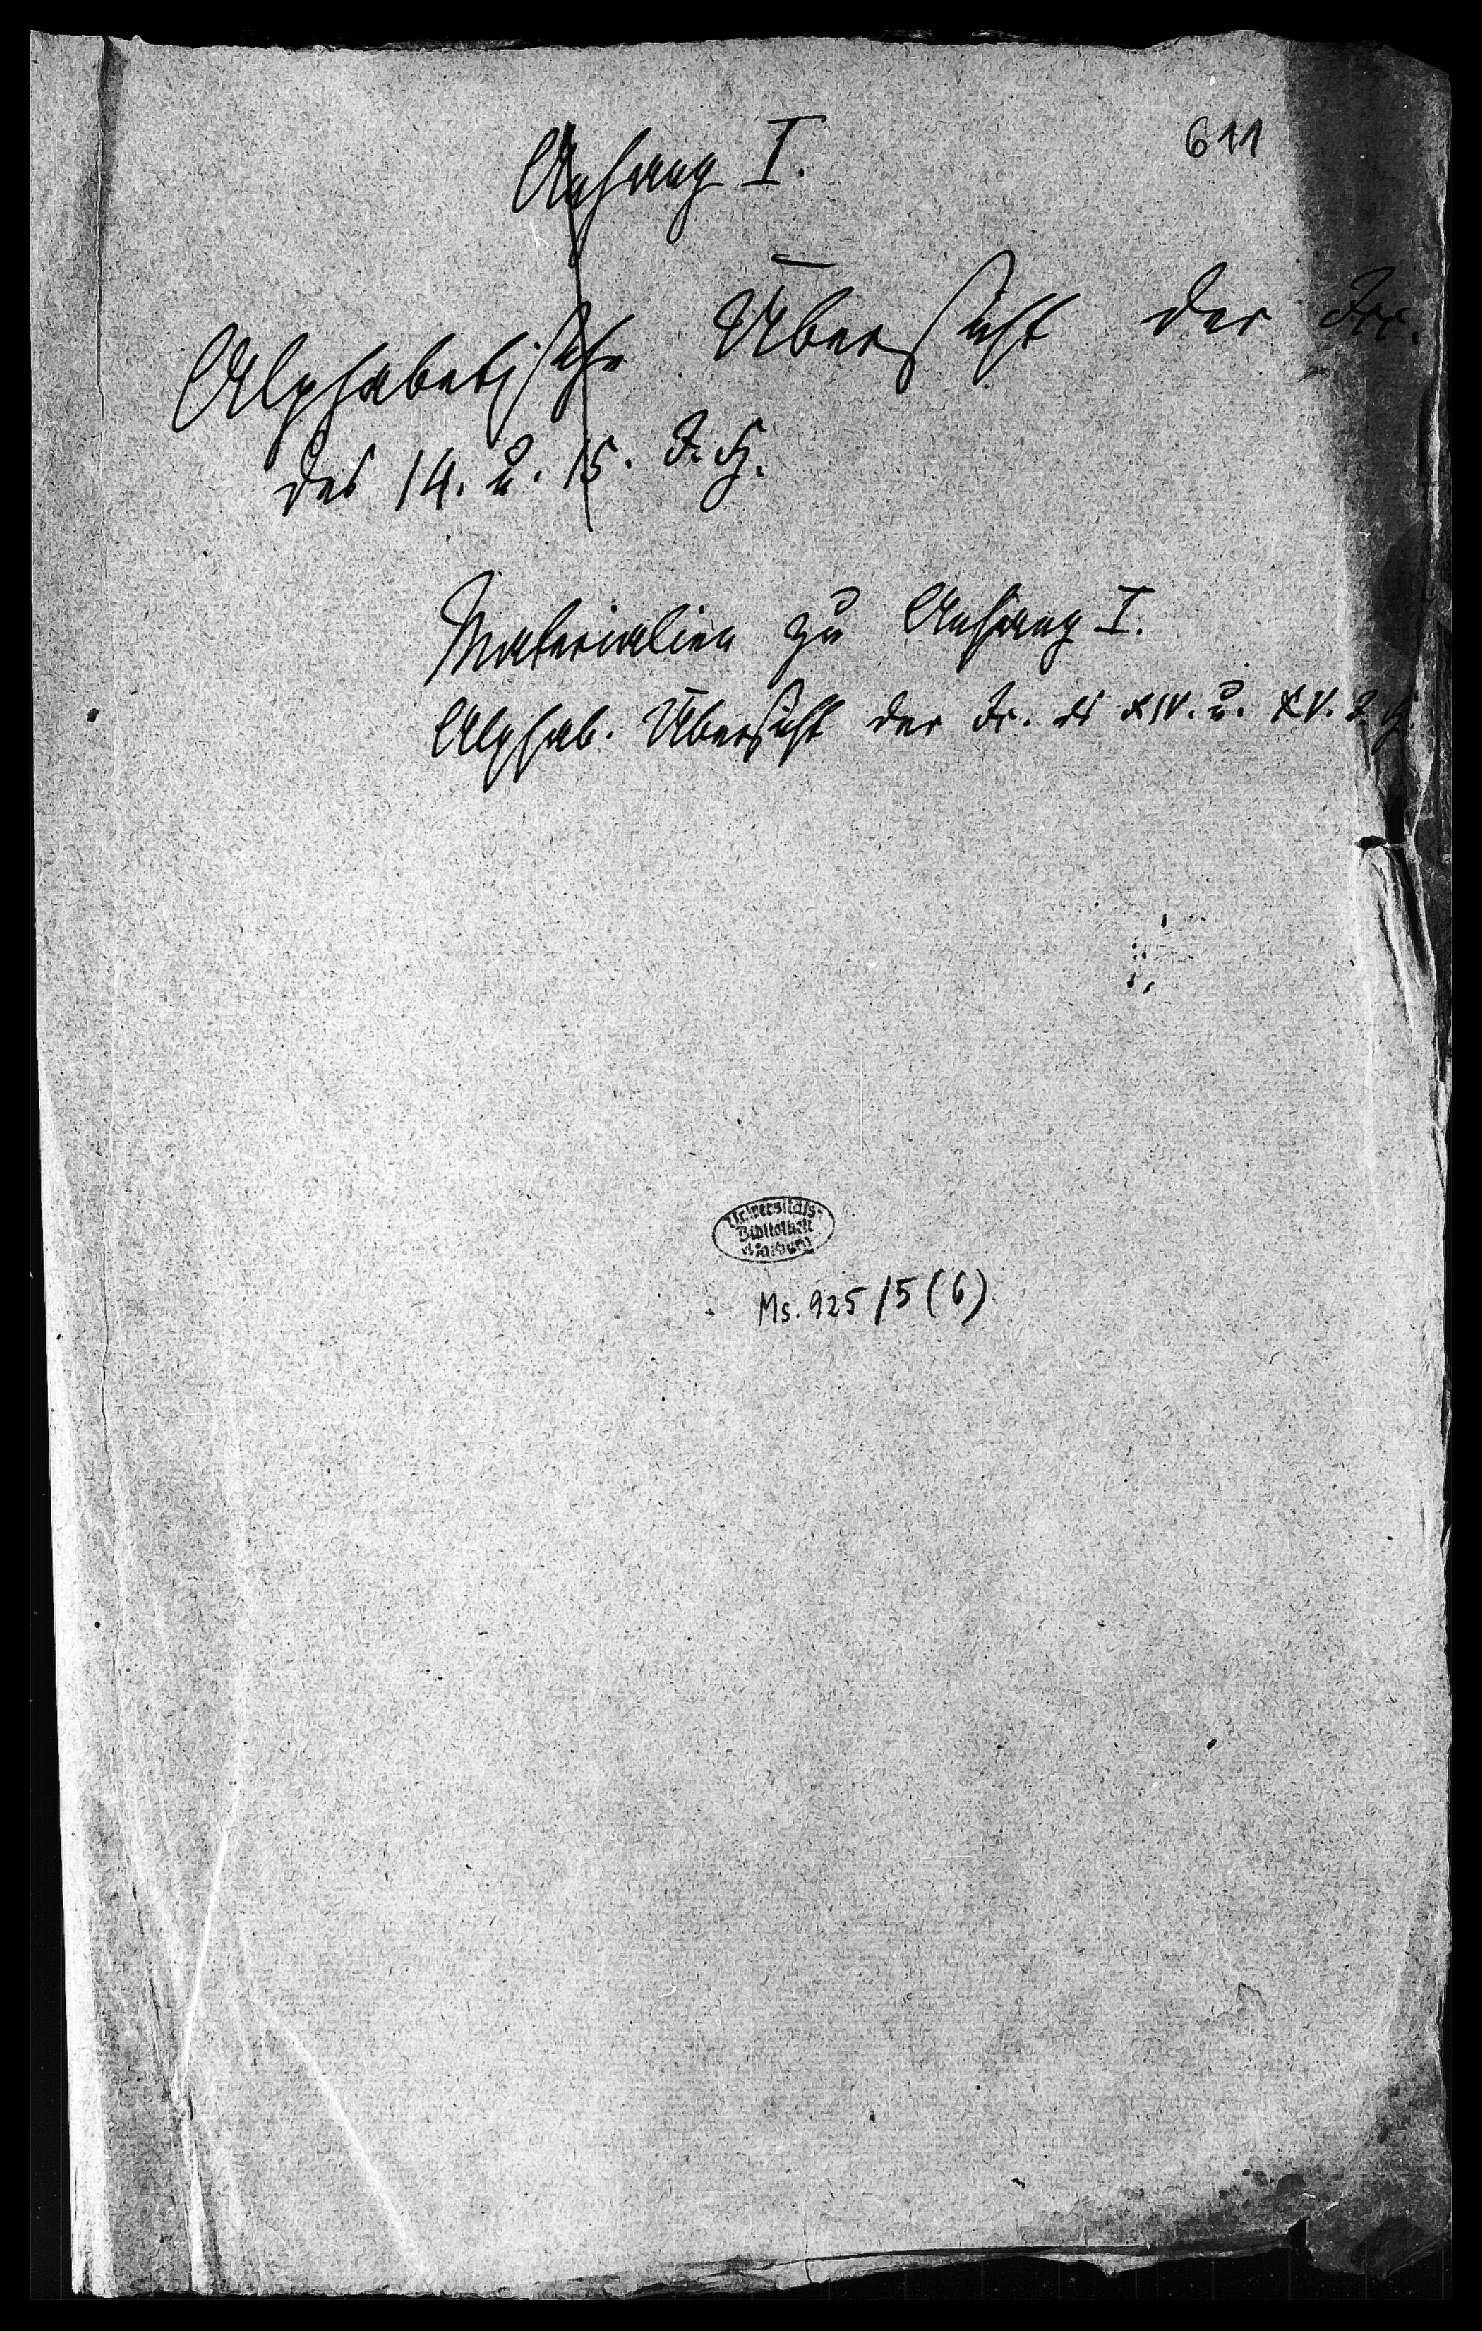 611
Anhang I.
Alphabetische Übersicht der Fr.
des 14. u. 15. J. H.
Materialien zu Anhang I.
Alphab. Übersicht der Fr. ds XIV. u. XV. J. H.
Universitäts-
Bibliothek
Marburg
Ms. 925/5 (6)